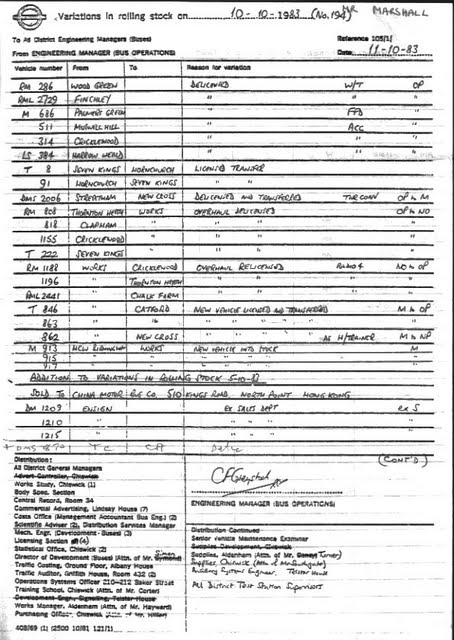 Variations in rolling stock on 10-10-1983 (No. 194) MR MARSHALL
To All District Engineering Managers (Buses) Reference 105/1/
From ENGINEERING MANAGER (BUS OPERATIONS) Date 11-10-83
Vehicle number From To Reason for variation
RM 286 WOOD GREEN DELICENSED W/T OP
RML 2729 FINCHLEY " " "
M 686 PALMERS GREEN " FFD "
511 MUSWELL HILL " ACC "
314 CRICKLEWOOD " " "
LS 384 HARROW WEALD " " "
T 8 SEVEN KINGS HORNCHURCH LICENSED TRANSFER
91 HORNCHURCH SEVEN KINGS " "
DMS 2006 STREATHAM NEW CROSS DELICENSED AND TRANSFERRED OP to M
RM 808 THORNTON HEATH WORKS OVERHAUL DELICENSED OP to NO
818 CLAPHAM " " " "
1155 CRICKLEWOOD " " " "
T 222 SEVEN KINGS " " " "
RM 1188 WORKS CRICKLEWOOD OVERHAUL RELICENSED NO to OP
1196 " THORNTON HEATH " " " "
RML 2441 " CHALK FARM " " " "
T 846 " CATFORD NEW VEHICLE LICENSED AND TRANSFERRED M to OP
863 " " " " " "
862 " NEW CROSS " " AS H/TRAINER M to NP
M 913 WORKS NEW VEHICLE INTO STOCK M
915 " " " " "
917 " " " " "
ADDITION TO VARIATIONS IN ROLLING STOCK 5-10-83
SOLD TO CHINA MOTOR BUS CO. 510 KINGS RMD. NORTH POINT HONG KONG
DM 1209 ENSIGN EX SALES DEPT ex S
1210 " " " "
1215 " " " "
(CONT'D.)
Distribution:
All District General Managers
Advert Controller, Chiswick
Works Study, Chiswick (1)
Body Spec. Section
Central Record, Room 34
Commercial Advertising, Lindsay House (7)
Costs Office (Management Accountant Bus Eng.) (2)
Scientific Adviser (2), Distribution Services Manager
Mech. Engr. (Development - Buses) (3)
Licensing Section (4)
Statistical Office, Chiswick (2)
Director of Development (Buses) (Attn. of Mr
Traffic Costing, Ground Floor, Albany House
Traffic Auditor, Griffith House, Room 432 (2)
Operations Systems Officer 210-212 Baker Street
Training School, Chiswick (Attn. of Mr. Carter)
Development Engr., Signalling, Telstar House
Works Manager, Aldenham (Attn. of Mr. Hayward)
Purchasing Officer, Chiswick (Attn. of Mr.
408/69 (1) (2500 10/81 121/1)
ENGINEERING MANAGER (BUS OPERATIONS)
Distribution Continued
Senior Vehicle Maintenance Examiner
Supplies Development, Chiswick
Supplies, Aldenham (Attn. of Mr. Turner)
Supplies, Chiswick (Attn of
Auxiliary Systems Engineer, Telstar House
All District Test Station Supervisors